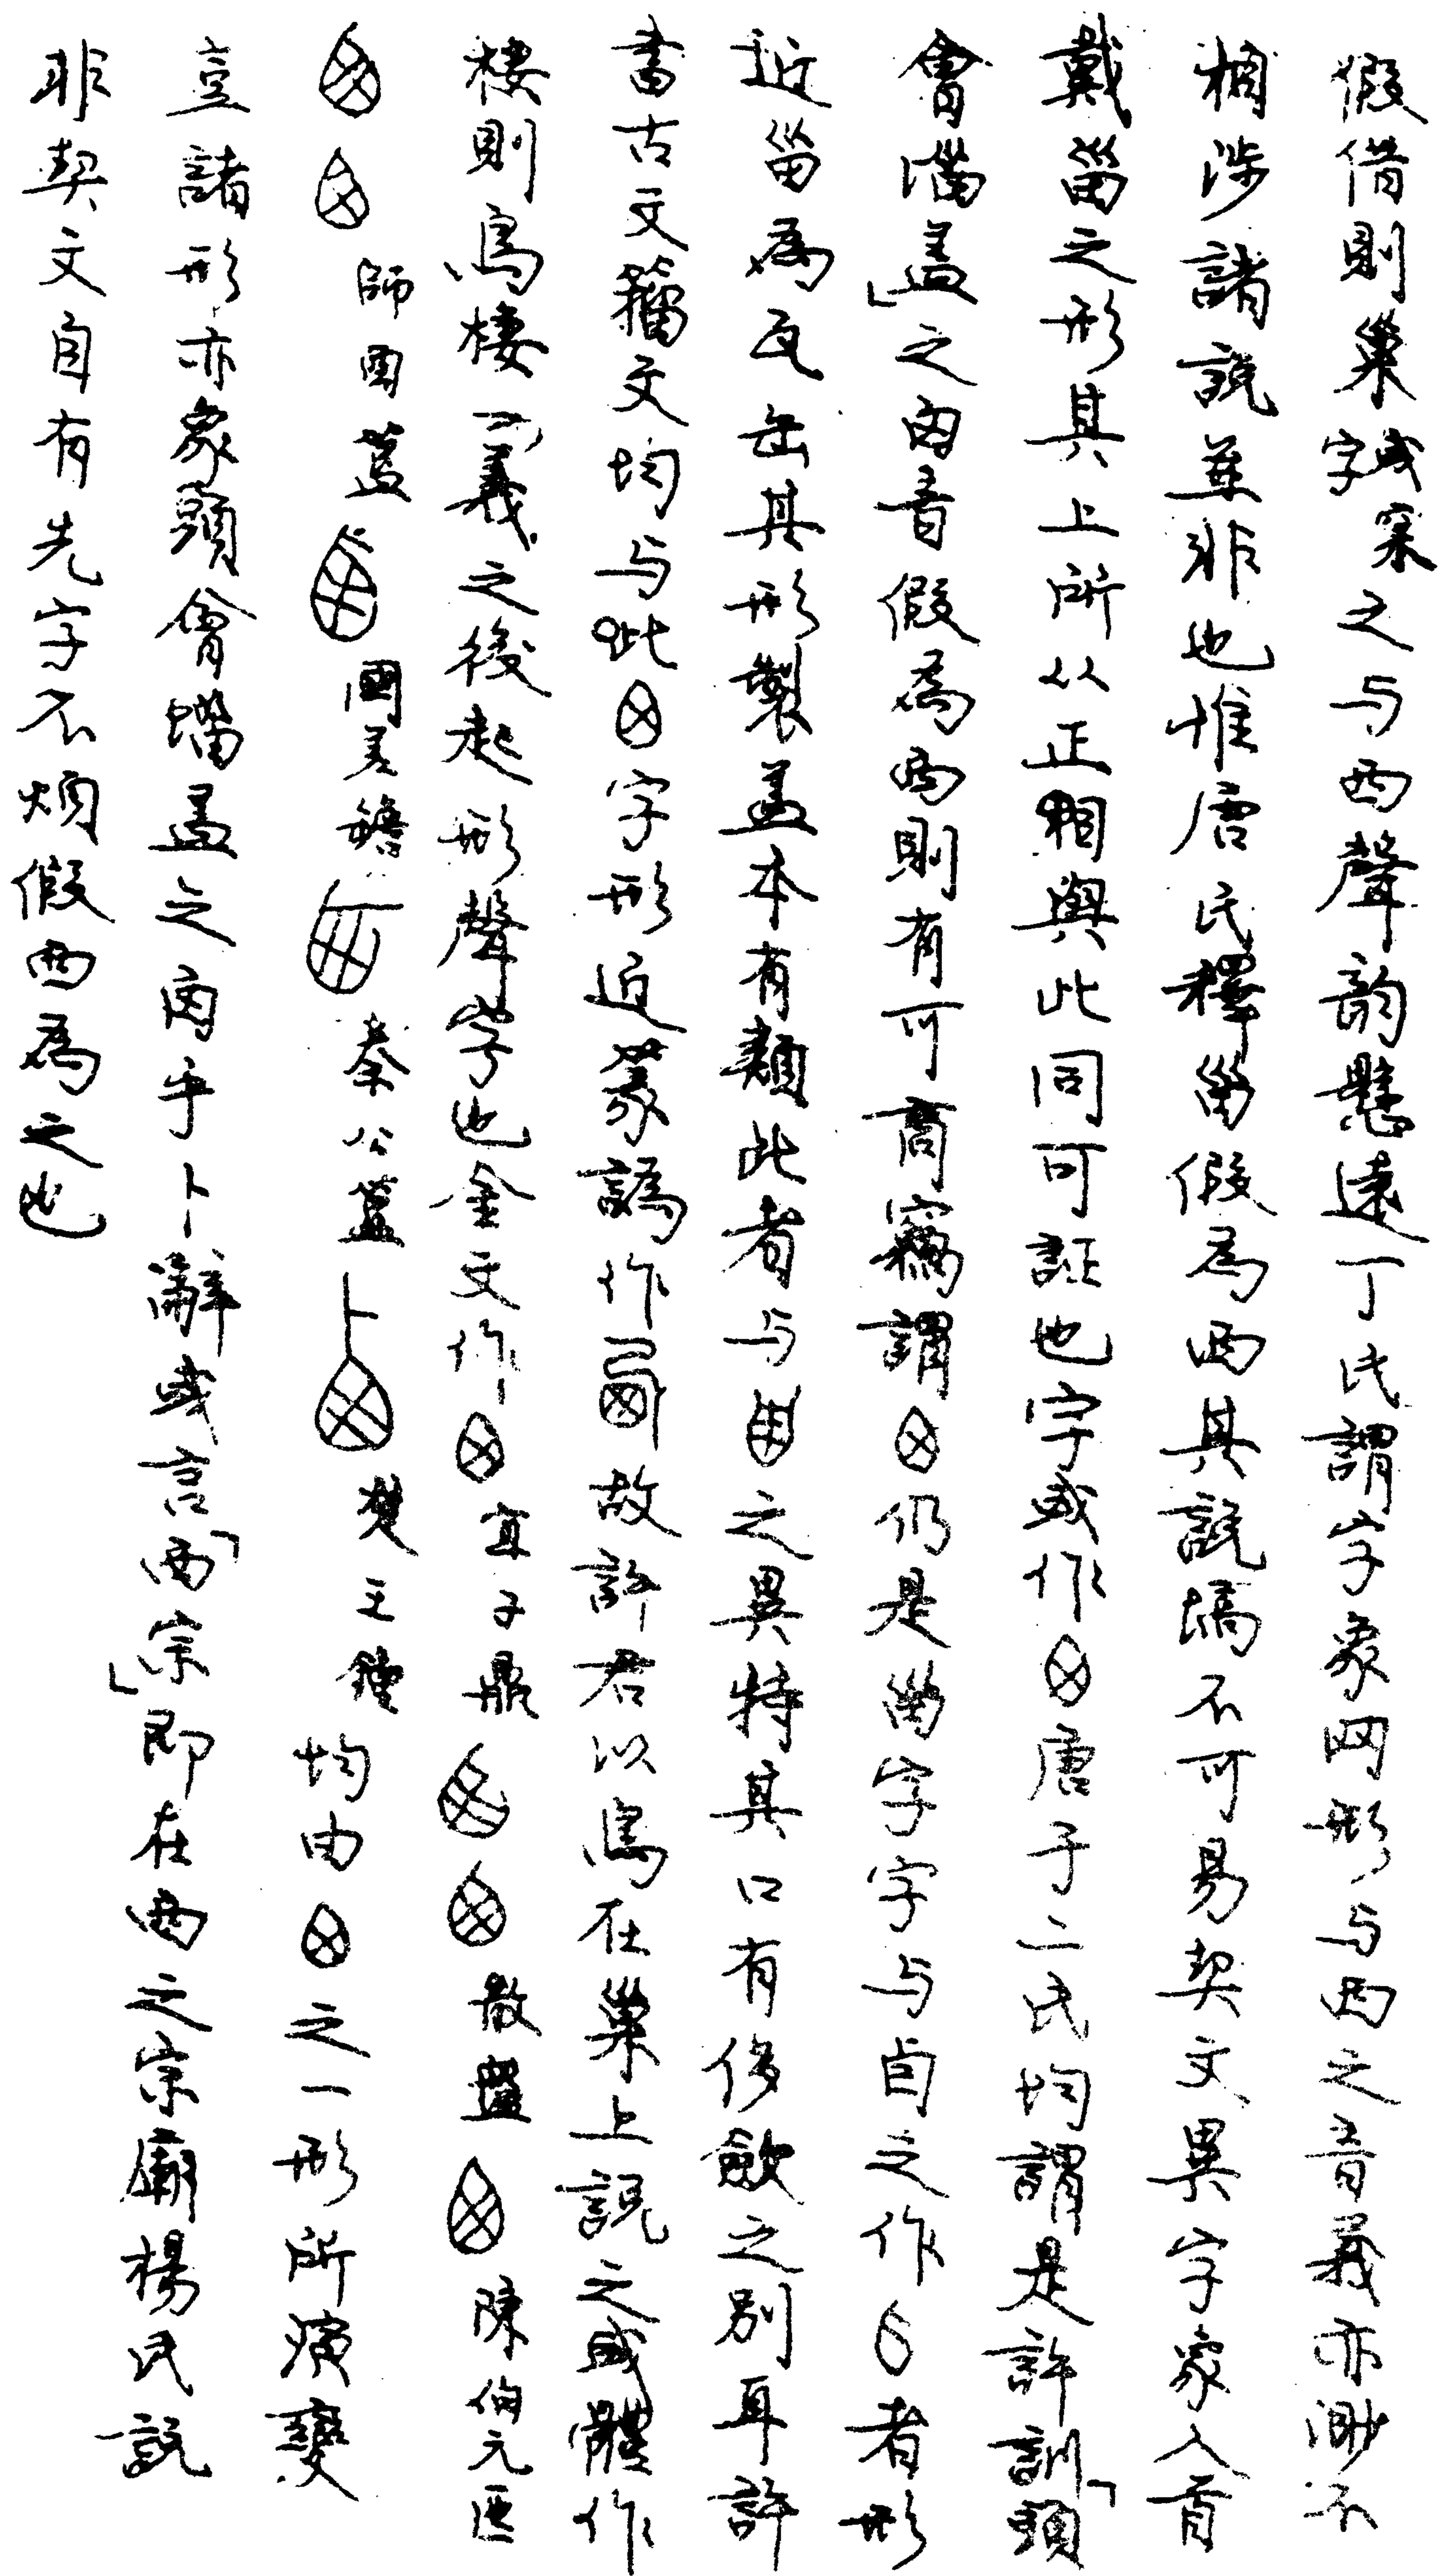 假借則巢字或窠之与西聲韵懸遠丁氏謂字象网形与西之音義亦渺不
相涉諸說並非也惟唐氏釋甾假爲西其說塙不可易契文異字象人首
戴甾之形其上所从正相與此同可証也字或作唐于二氏均謂是許訓「頭
會𡿺蓋」之囟音假爲西則有可商竊謂仍是甾字字与卣之作者形
近甾爲瓦缶其形製蓋本有類此者与之異特其口有侈歛之別耳許
書古文籀文均与此字形近篆譌作故許君以鳥在巢上說之或體作
棲則鳥棲一義之後起形聲字也金文作宜子鼎散盤陳伯元匜
師酉簋國差𦉜秦公簋楚王鐘均由之一形所演變
豈諸形亦象頭會𡿺蓋之囟乎卜辭或言「西宗」即在西之宗廟楊氏說
非契文自有先字不煩假西爲之也